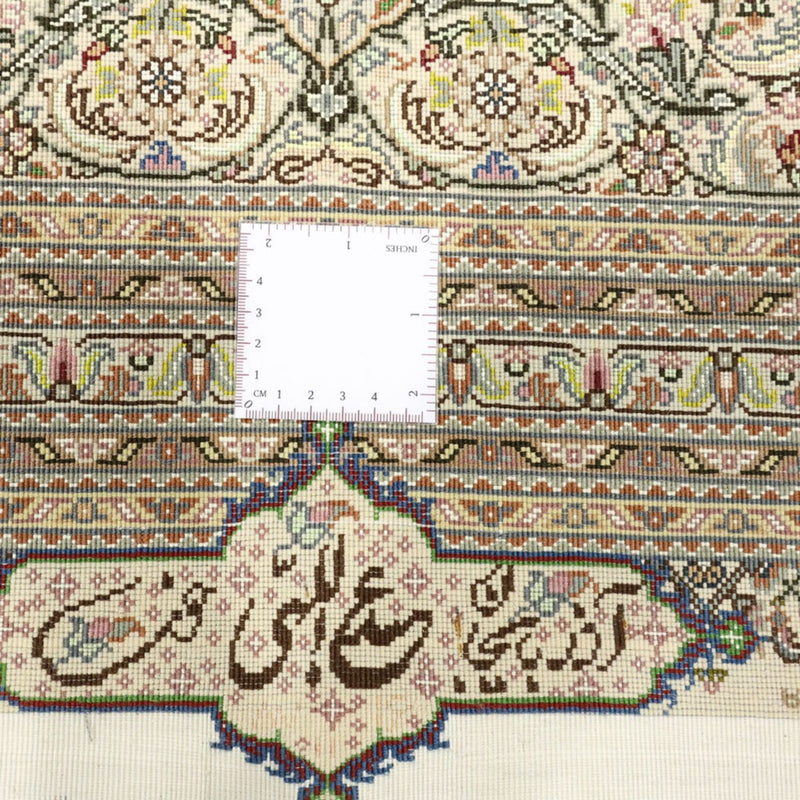 2 1 0
INCHES
4
3
2
1
1
2
0 CM 1 2 3 4
فرش آذربایجان